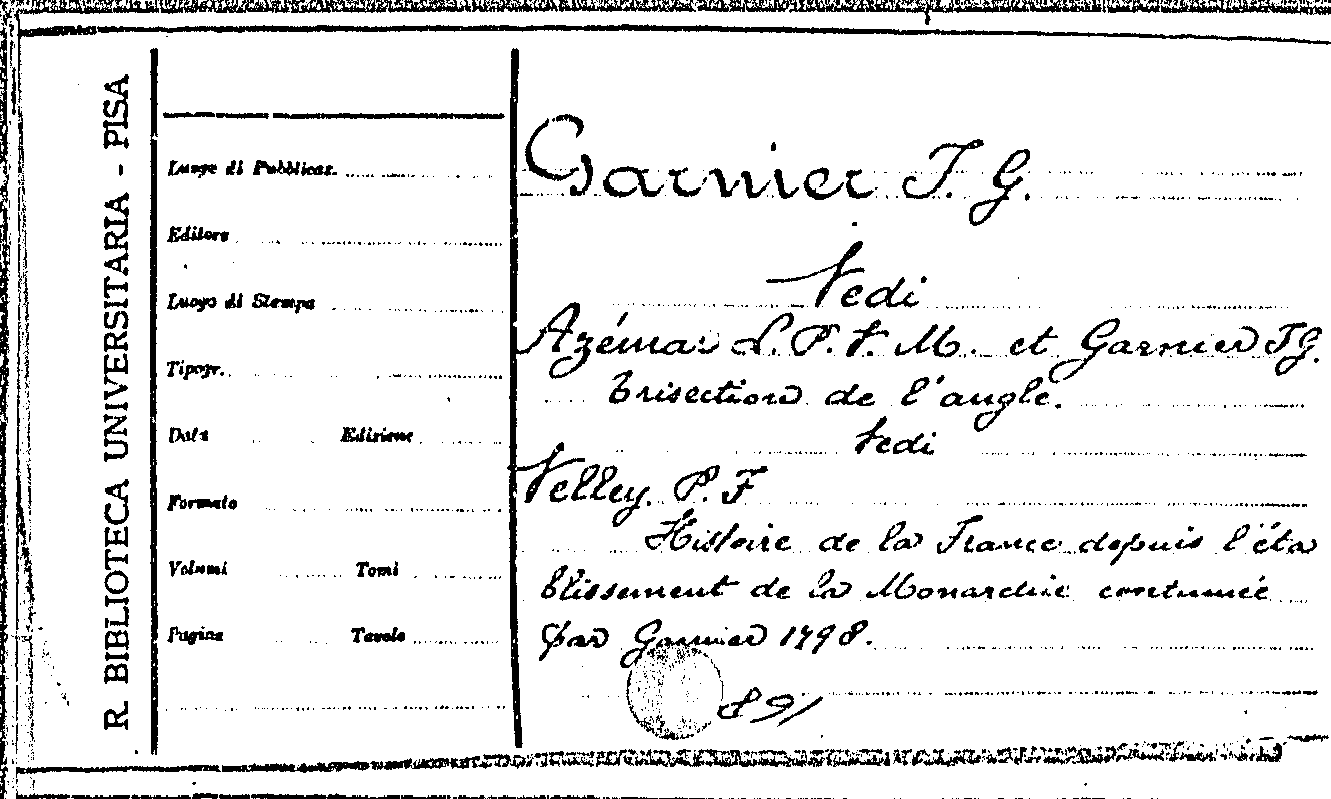 R. BIBLIOTECA UNIVERSITARIA - PISA
Luogo di Pubblicaz.
Editore
Luogo di Stampa
Tipogr.
Data Edizione
Formato
Volumi Tomi
Pagine Tavole
Garnier J. G.
Vedi
Azémar L. P. F. M. et Garnier J G.
trisection de l'angle.
Vedi
Velley. P. F
Histoire de la France depuis l'éta
blissement de la Monarchie continuée
par Garnier 1798.
891